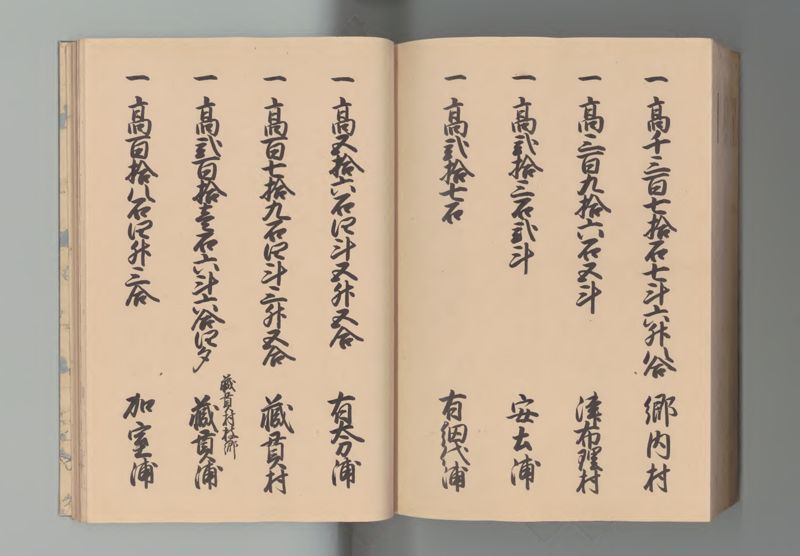 一 高千三百七拾石七斗六升八合 郷内村
一 高三百九拾六石五斗 津布理村
一 高弐拾三石弐斗 安土浦
一 高弐拾七石 有田代浦
一 高五拾六石四斗五升五合 有大分浦
一 高百七拾九石四斗三升五合 蔵貫村
一 高弐百拾壱石六斗六合四夕 蔵貫浦
蔵貫村枝郷
一 高百拾八石四升三合 加室浦